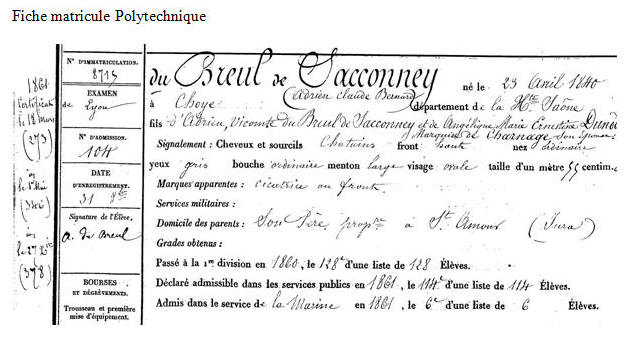 Fiche matricule Polytechnique
N° D'IMMATRICULATION.
8715
EXAMEN
de Lyon
N° D'ADMISSION.
104
DATE
D'ENREGISTREMENT.
31 8bre
Signature de l'Élève,
a. du Breul
BOURSES
ET DÉGRÈVEMENTS.
Trousseau et première
mise d'équipement.
1861
certificat
le 12 mars
(273)
(346)
le 27 8bre
(378)
du Breul de Sacconney né le 23 Avril 1840
(Adrien Claude Bernard)
à Choye département de la Hte Saône
fils d'Adrien, Vicomte du Breul de Sacconney et de Angélique Marie Ernestine
Marquise de Charnage son épouse
Signalement : Cheveux et sourcils Chatains front haut nez ordinaire
yeux gris bouche ordinaire menton large visage ovale taille d'un mètre 55 centim.
Marques apparentes : cicatrice au front.
Services militaires :
Domicile des parents : Son Père, propre à St Amour (Jura)
Grades obtenus :
Passé à la 1re division en 1860, le 128e d'une liste de 128 Élèves.
Déclaré admissible dans les services publics en 1861, le 114e d'une liste de 114 Élèves.
Admis dans le service de la Marine en 1861, le 6e d'une liste de 6 Élèves.